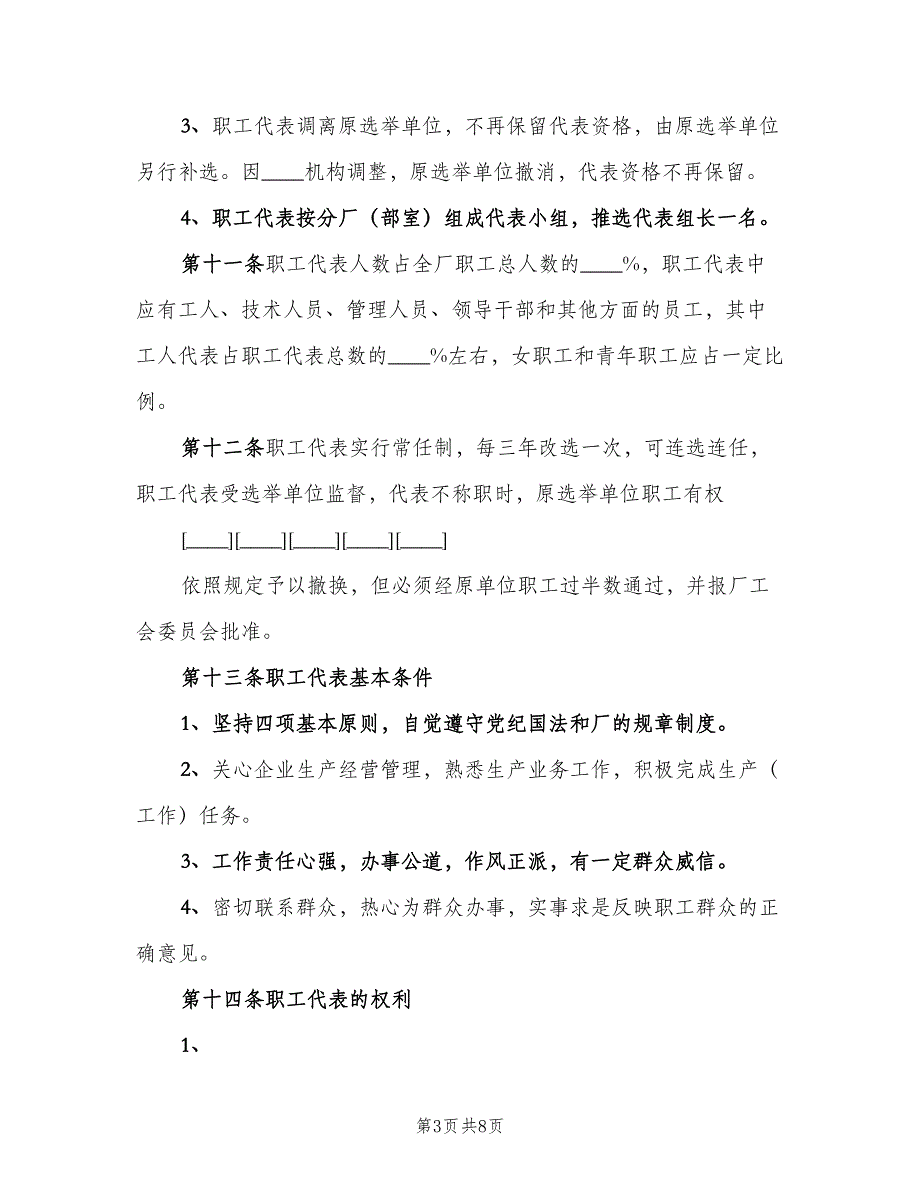 3、职工代表调离原选举单位，不再保留代表资格，由原选举单位
另行补选。因____机构调整，原选举单位撤消，代表资格不再保留。
4、职工代表按分厂（部室）组成代表小组，推选代表组长一名。
第十一条职工代表人数占全厂职工总人数的____%，职工代表中
应有工人、技术人员、管理人员、领导干部和其他方面的员工，其中
工人代表占职工代表总数的____%左右，女职工和青年职工应占一定比
例。
第十二条职工代表实行常任制，每三年改选一次，可连选连任，
职工代表受选举单位监督，代表不称职时，原选举单位职工有权
[____][____][____][____][____]
依照规定予以撤换，但必须经原单位职工过半数通过，并报厂工
会委员会批准。
第十三条职工代表基本条件
1、坚持四项基本原则，自觉遵守党纪国法和厂的规章制度。
2、关心企业生产经营管理，熟悉生产业务工作，积极完成生产（
工作）任务。
3、工作责任心强，办事公道，作风正派，有一定群众威信。
4、密切联系群众，热心为群众办事，实事求是反映职工群众的正
确意见。
第十四条职工代表的权利
1、
第3页 共8页